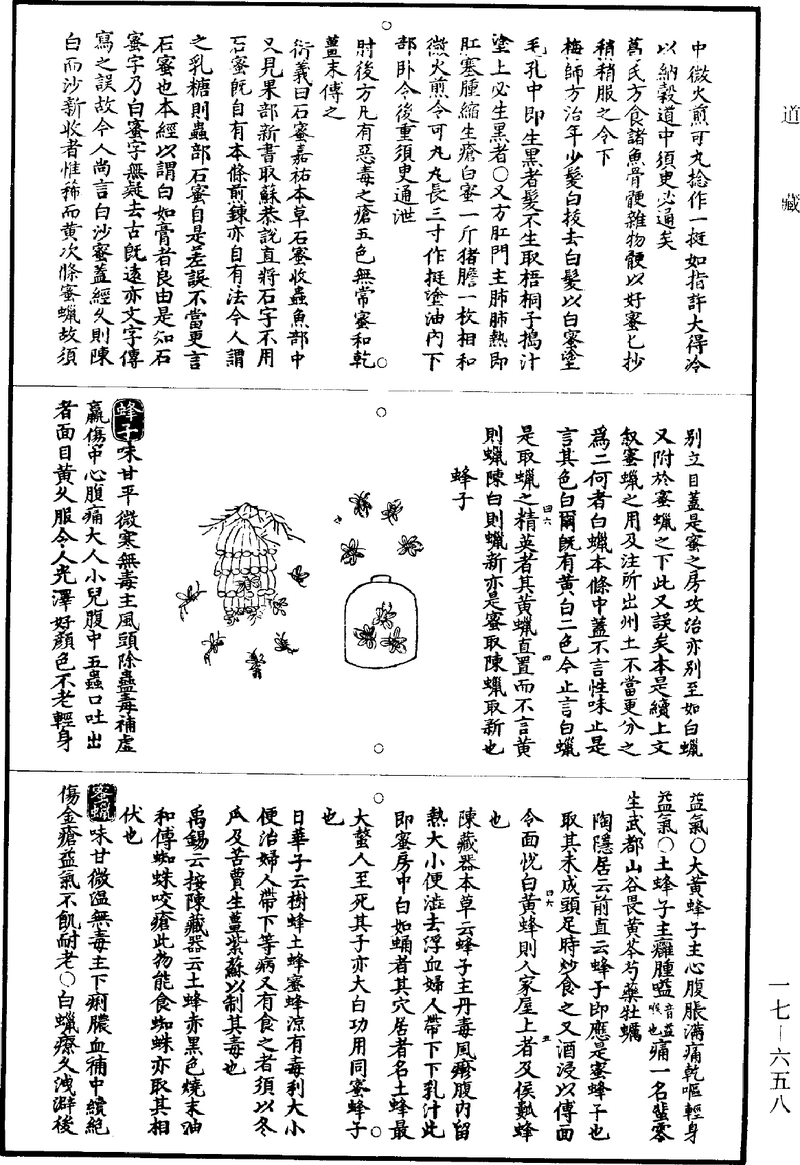 道藏
中微火煎可丸捻作一挺如指許大得冷
以納穀道中須臾必通矣
葛氏方食諸魚骨骾雜物骾以好蜜匕抄
稍稍服之令下
梅師方治年少髮白拔去白髮以白蜜塗
毛孔中即生黑者髮不生取梧桐子搗汁
塗上必生黑者○又方肛門主肺肺熱即
肛塞腫縮生瘡白蜜一斤猪膽一枚相和
微火煎令可丸丸長三寸作挺塗油內下
部卧令後重須臾通泄
肘後方凡有惡毒之瘡五色無常蜜和乾
薑末傅之
衍義曰石蜜嘉祐本草石蜜收蟲魚部中
又見果部新書取蘇恭說直將石字不用
石蜜既自有本條煎鍊亦自有法今人謂
之乳糖則蟲部石蜜自是差誤不當更言
石蜜也本經以謂白如膏者良由是知石
蜜字乃白蜜字無疑去古既遠亦文字傳
寫之誤故今人尚言白沙蜜蓋經久則陳
白而沙新收者惟稀而黄次條蜜蠟故須
別立目蓋是蜜之房攻治亦別至如白蠟
又附於蜜蠟之下此又誤矣本是續上文
叙蜜蠟之用及注所出州土不當更分之
爲二何者白蠟本條中蓋不言性味止是
言其色白爾既有黄白二色今止言白蠟
是取蠟之精英者其黄蠟直置而不言黄
則蠟陳白則蠟新亦是蜜取陳蠟取新也
四六
四
蜂子
蜂子味甘平微寒無毒主風頭除蠱毒補虚
羸傷中心腹痛大人小兒腹中五蟲口吐出
者面目黄久服令人光澤好顏色不老輕身
益氣○大黄蜂子主心腹脹滿痛乾嘔輕身
益氣○土蜂子主癰腫嗌音益喉也痛一名蜚零
生武都山谷畏黄芩芍藥牡蠣
陶隱居云前直云蜂子即應是蜜蜂子也
取其未成頭足時炒食之又酒浸以傅面
令面悅白黄蜂則人家屋上者及㺅瓠蜂
也
四六
五
陳藏器本草云蜂子主丹毒風瘮腹內留
熱大小便澁去浮血婦人帶下下乳汁此
即蜜房中白如蛹者其穴居者名土蜂最
大螫人至死其子亦大白功用同蜜蜂子
也
日華子云樹蜂土蜂蜜蜂凉有毒利大小
便治婦人帶下等病又有食之者須以冬
瓜及苦蕒生薑紫蘇以制其毒也
禹錫云按陳藏器云土蜂赤黑色燒末油
和傅蜘蛛咬瘡此物能食蜘蛛亦取其相
伏也
蜜蠟味甘微温無毒主下痢膿血補中續絶
傷金瘡益氣不飢耐老○白蠟療久洩澼後
一七—六五八